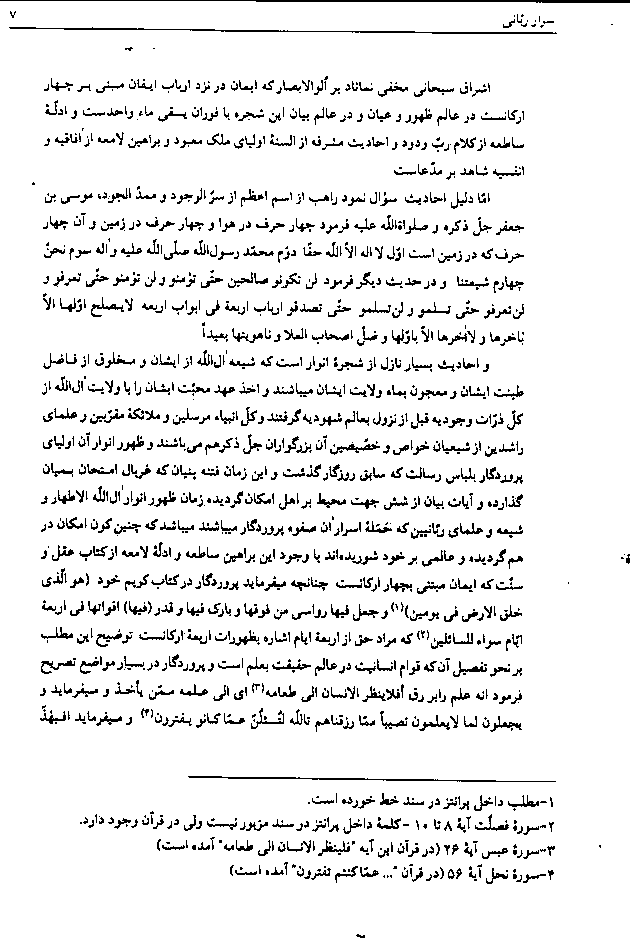 سوار ربّانی
۷
اشراق سبحانی مخفی نماناد بر ألوالابصار که ایمان در نزد ارباب ایقان مبنی بر چهار
ارکانست در عالم ظهور و عیان و در عالم بیان این شجره با فوران یسقی ماء واحدست و ادلّهٔ
ساطعه از کلام ربّ ودود و احادیث مشرفه از السنهٔ اولیای ملک معبود و براهین لامعه از آفاقیه و
انفسیه شاهد بر مدّعاست
امّا دلیل احادیث سؤال نمود راهب از اسم اعظم از سرّ الوجود و ممدّ الجود، موسی بن
جعفر جلّ ذکره و صلواةاللّه علیه فرمود چهار حرف در هوا و چهار حرف در زمین و آن چهار
حرف که در زمین است اوّل لااله الاّ اللّه حقّا دوّم محمّد رسول‌اللّه صلّی‌اللّه علیه و آله سوم نحن
چهارم شیعتنا و در حدیث دیگر فرمود لن تکونو صالحین حتّی تؤمنو و لن تؤمنو حتّی تعرفو و
لن تعرفو حتّی تسلمو و لن تسلمو حتّی تصدقو ارباب اربعة فی ابواب اربعه لایصلح اوّلها الاّ
بآخرها و لاآخرها الاّ باوّلها و ضلّ اصحاب العلا و تاهوبتها بعیداً
و احادیث بسیار نازل از شجرهٔ انوار است که شیعه آل‌اللّه از ایشان و مخلوق از فاضل
طینت ایشان و معجون بماء ولایت ایشان میباشند و اخذ عهد محبّت ایشان را با ولایت آل‌اللّه از
کلّ ذرّات وجودیه قبل از نزول بعالم شهودیه گرفتند و کلّ انبیاء مرسلین و ملائکهٔ مقرّبین و علمای
راشدین از شیعیان خواص و خصّیصین آن بزرگواران جلّ ذکرهم می‌باشند و ظهور انوار آن اولیای
پروردگار بلباس رسالت که سابق روزگار گذشت و این زمان فتنه بنیان که غربال امتحان بمیان
گذارده و آیات بیان از شش جهت محیط بر اهل امکان گردیده زمان ظهور انوار آل‌اللّه الاطهار و
شیعه و علمای ربّانیین که حَمَلهٔ اسرار آن صفوه پروردگار میباشند میباشد که چنین کون امکان در
هم گردیده و عالمی بر خود شوریده‌اند با وجود این براهین ساطعه و ادلّهٔ لامعه از کتاب عقل و
سنّت که ایمان مبتنی بچهار ارکانست چنانچه میفرماید پروردگار در کتاب کریم خود (هو الّذی
خلق الارض فی یومین)(۱) و جعل فیها رواسی من فوقها و بارک فیها و قدر (فیها) اقواتها فی اربعة
ایّام سواء للسائلین(۲) که مراد حق از اربعة ایام اشاره بظهورات اربعهٔ ارکانست توضیح این مطلب
بر نحو تفصیل آن که قوام انسانیت در عالم حقیقت بعلم است و پروردگار در بسیار مواضع تصریح
فرمود انه علم رابر رق أفلاینظر الانسان الی طعامه(۳) ای الی علمه ممّن یأخذ و میفرماید و
یجعلون لما لایعلمون نصیباً ممّا رزقناهم تاللّه لتُسئلُنّ عمّا کانو یفترون(۴) و میفرماید افبهٰذ
۱-مطلب داخل پرانتز در سند خط خورده است.
۲-سورهٔ فصلّت آیهٔ ۸ تا ۱۰ -کلمهٔ داخل پرانتز در سند مزبور نیست ولی در قرآن وجود دارد.
۳-سورهٔ عبس آیهٔ ۲۶ (در قرآن این آیه "فلینظر الانسان الی طعامه" آمده است)
۴-سورهٔ نحل آیهٔ ۵۶ (در قرآن "... عمّا کنتم تفترون" آمده است)